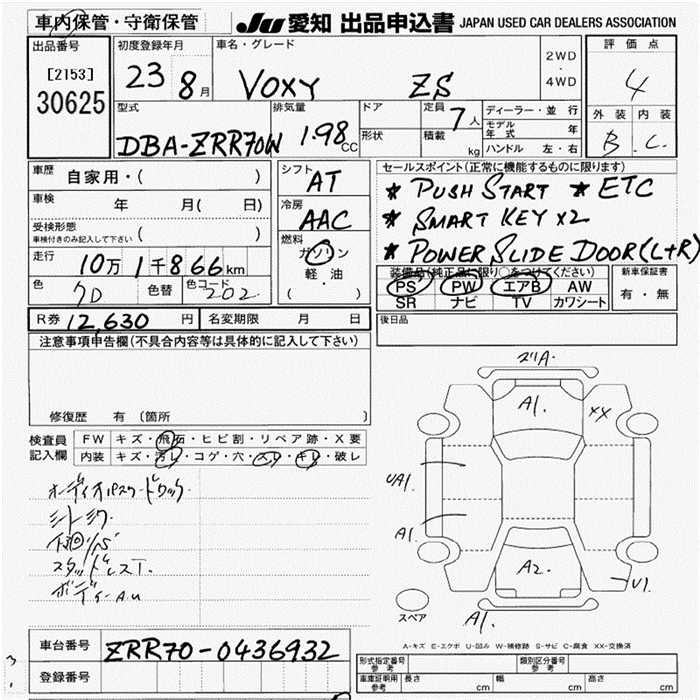 車内保管・守衛保管
JU 愛知 出品申込書 JAPAN USED CAR DEALERS ASSOCIATION
出品番号
[2153]
30625
初度登録年月
23 8月
車名・グレード
VOXY ZS
2WD
・
4WD
評価点
4
型式
DBA-ZRR70W
排気量
1.98 CC
ドア
形状
定員
7人
積載
kg
ディーラー・並行
モデル年式 年
ハンドル 左・右
外装 内装
B C
車歴 自家用・( )
車検 年 月( 日)
受検形態
車検付きのみ記入して下さい ( )
走行 10万1千866km
色 色替 色コード
202
シフト
AT
冷房
AAC
燃料
ガソリン
軽・油
( )
セールスポイント(正常に機能するものに限ります)
* PUSH START * ETC
* SMART KEY x2
* POWER SLIDE DOOR(L+R)
装備品(純正品に限り○をつけてください)
PS PW エアB AW
SR ナビ TV カワシート
新車保証書
有・無
R券 12,630 円 名変期限 月 日
後日品
注意事項申告欄(不具合内容等は具体的に記入して下さい)
修復歴 有 (箇所 )
検査員
記入欄
FW キズ・飛石・ヒビ割・リペア跡・X要
内装 キズ・汚レ・コゲ・穴・スレ・キレ・破レ
A1.
XX
UA1.
A1.
A2.
U1
A1.
スペア
A-キズ E-エクボ U-凹み W-補修跡 S-サビ C-腐食 XX-交換済
車台番号 ZRR70-0436932
登録番号
形式指定番号
参考
類別区分番号
参考
車庫証明用
参考
長さ cm 幅 cm 高さ cm